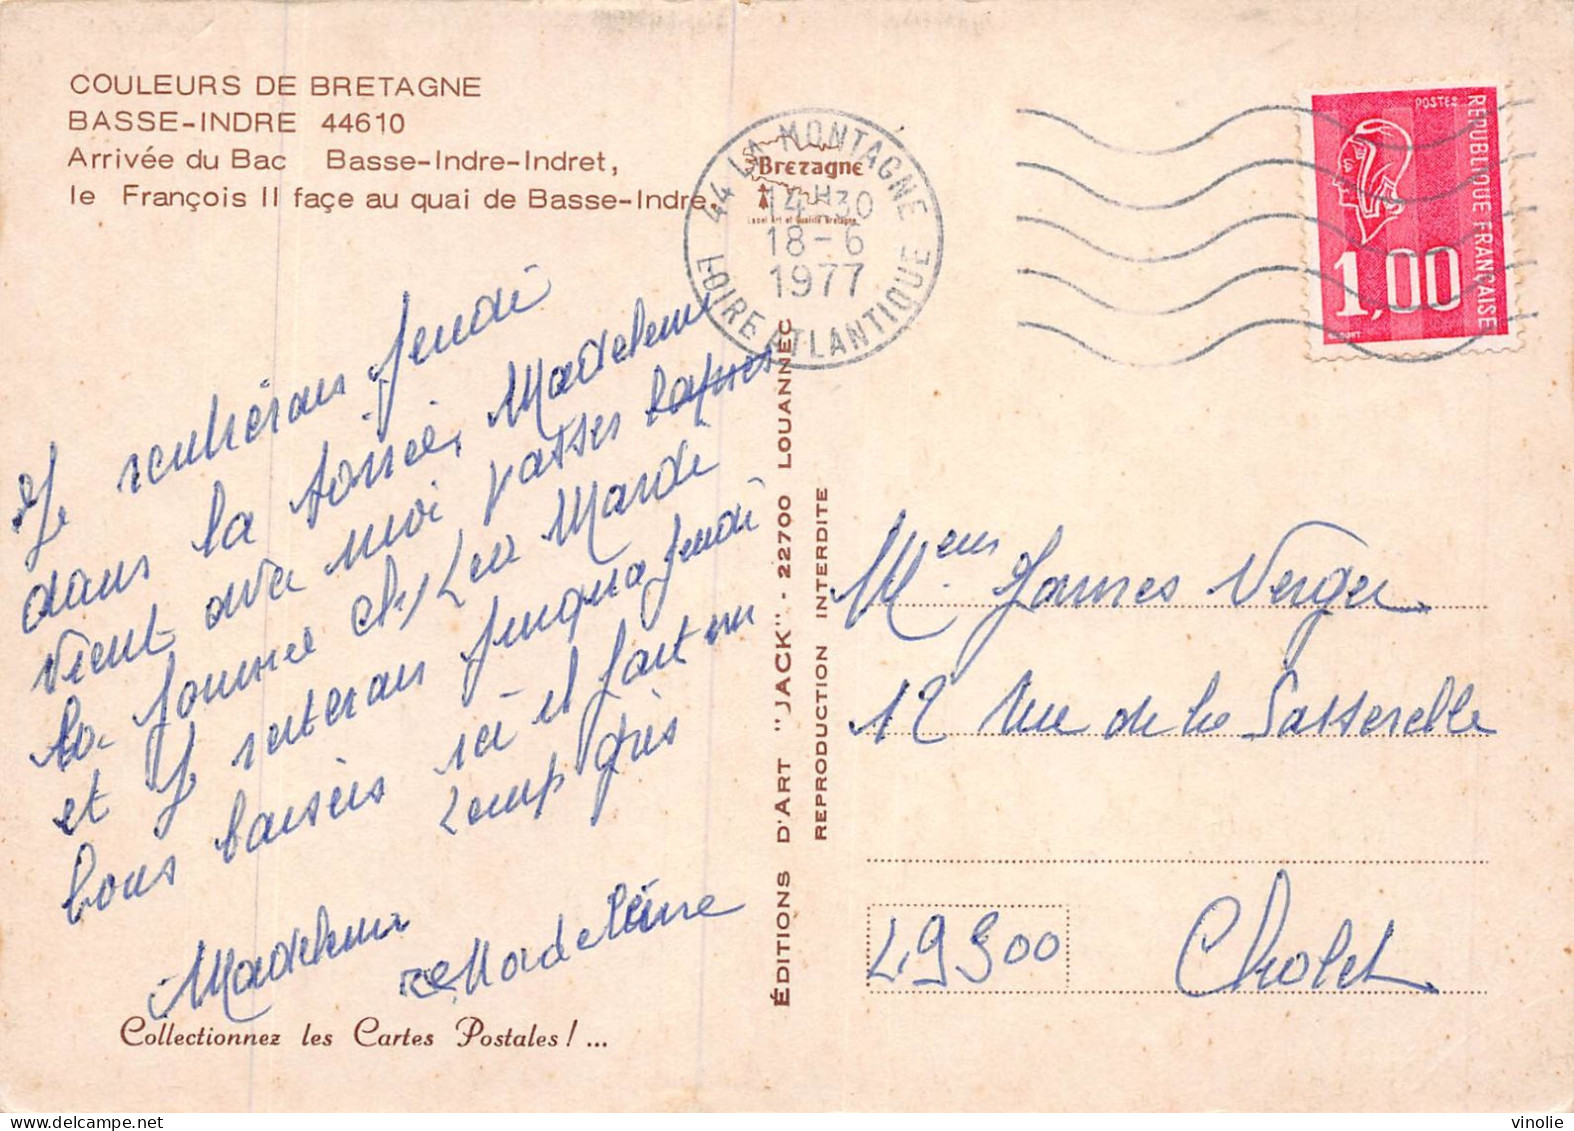 COULEURS DE BRETAGNE
BASSE-INDRE 44610
Arrivée du Bac Basse-Indre-Indret,
le François II façe au quai de Basse-Indre.
44 LA MONTAGNE
Bretagne
Label Art et Qualité Bretagne
14H30
18-6
1977
LOIRE ATLANTIQUE
POSTES
REPUBLIQUE FRANÇAISE
1,00
Je rentrerais jeudi
dans la soirée, Madeleine
vient avec moi passer
la journée chez Léa Mardi
et je resterais jusqua jeudi
bons baisers ici il fait un
temp gris
Madeleine
Madeleine
Collectionnez les Cartes Postales ! ...
ÉDITIONS D'ART "JACK" - 22700 LOUANNEC
REPRODUCTION INTERDITE
Verger
12 Rue de la Sasserelle
49300 Cholet
vinolie